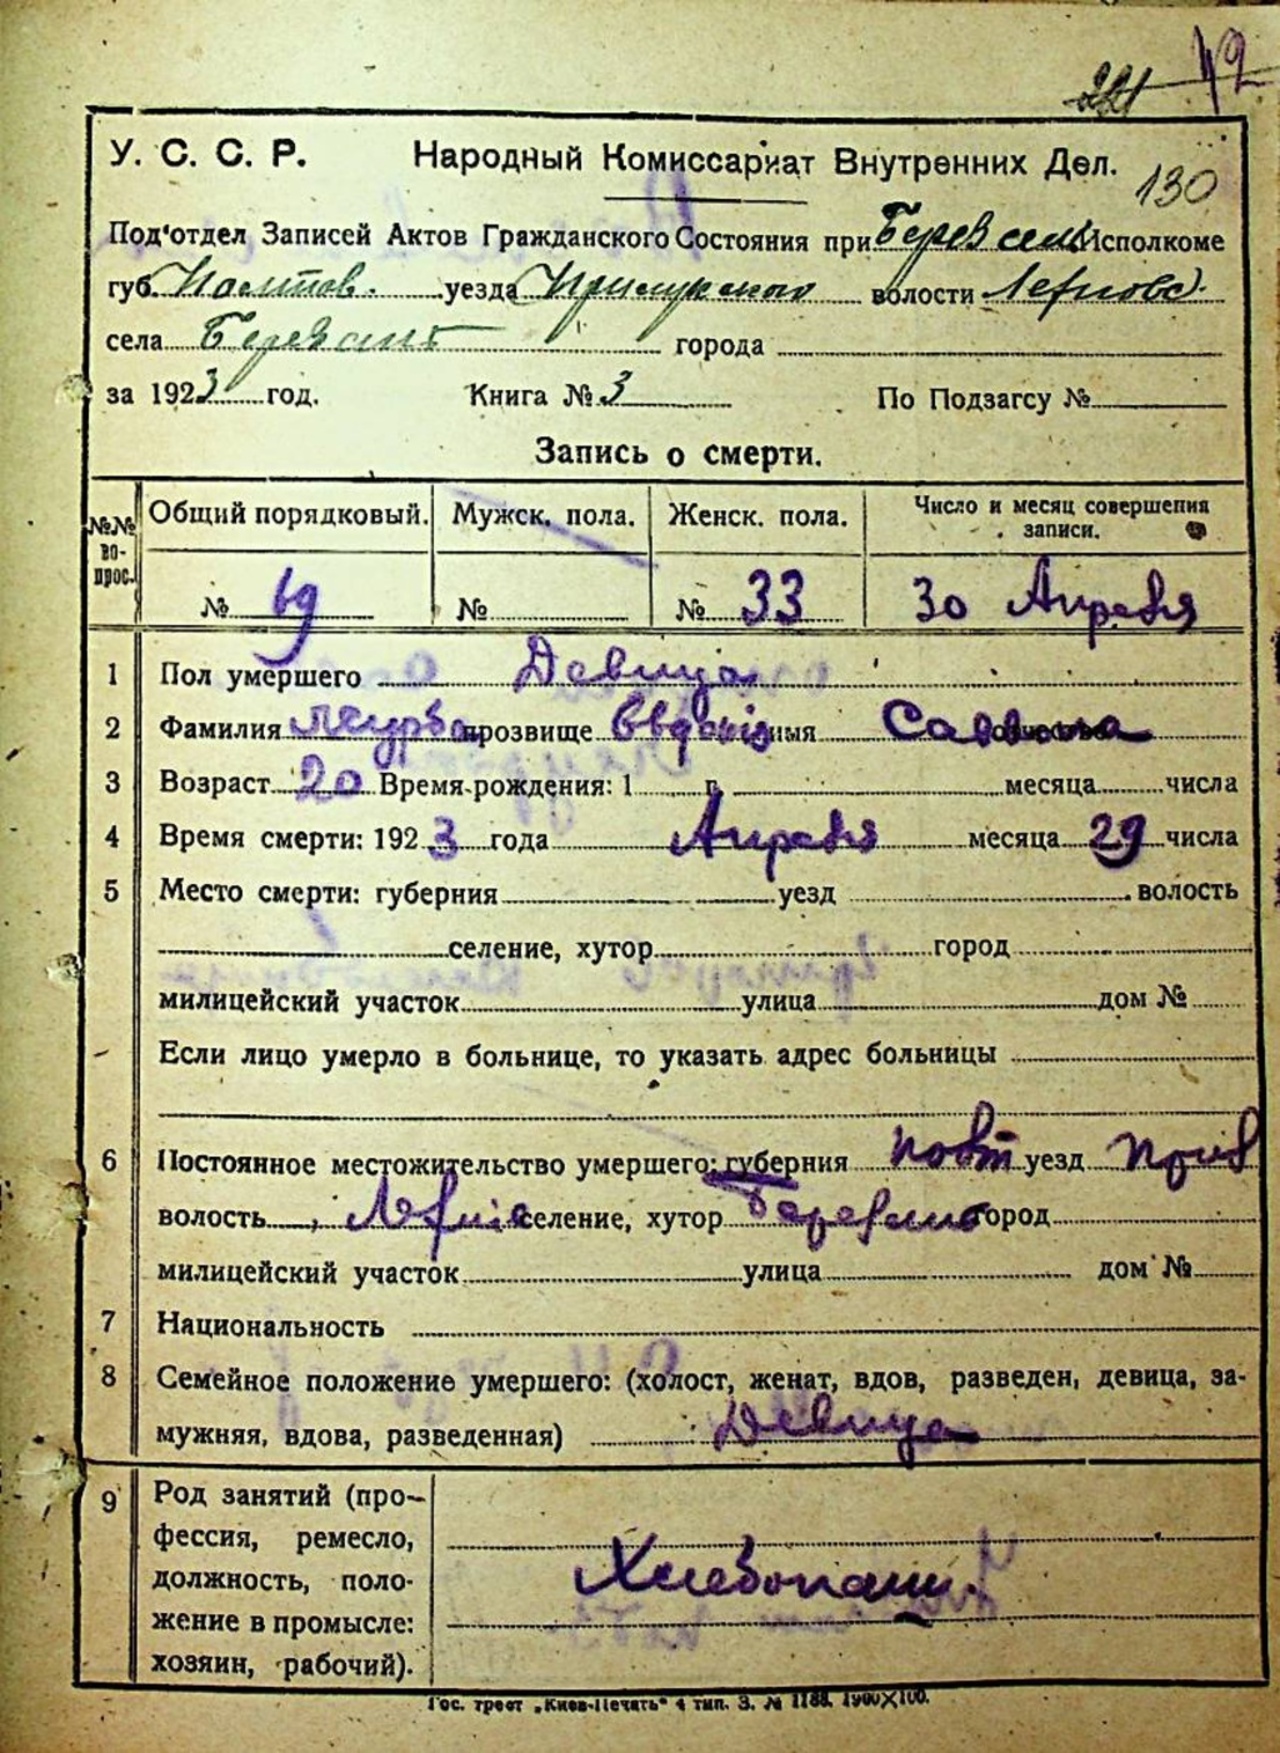 221 42
У. С. С. Р. Народный Комиссариат Внутренних Дел.
130
Под'отдел Записей Актов Гражданского Состояния при Исполкоме
губ. Полтов. уезда Прилукского волости
села города
за 1923 год. Книга № 3 По Подзагсу №
Запись о смерти.
№№ вопрос. Общий порядковый. Мужск. пола. Женск. пола. Число и месяц совершения записи.
№ 69 № № 33 30 Апреля
1 Пол умершего Девица
2 Фамилия прозвище Евдокія имя Саввова
3 Возраст 20 Время рождения: 1 г. месяца числа
4 Время смерти: 1923 года Апреля месяца 29 числа
5 Место смерти: губерния уезд волость
селение, хутор город
милицейский участок улица дом №
Если лицо умерло в больнице, то указать адрес больницы
6 Постоянное местожительство умершего: губерния Полт уезд Прил
волость селение, хутор город
милицейский участок улица дом №
7 Национальность
8 Семейное положение умершего: (холост, женат, вдов, разведен, девица, за-
мужняя, вдова, разведенная) Девица
9 Род занятий (про-
фессия, ремесло,
должность, поло- Хлебопаш.
жение в промысле:
хозяин, рабочий).
Гос. трест „Киев-Печать" 4 тип. З. № 1188. 1900×100.